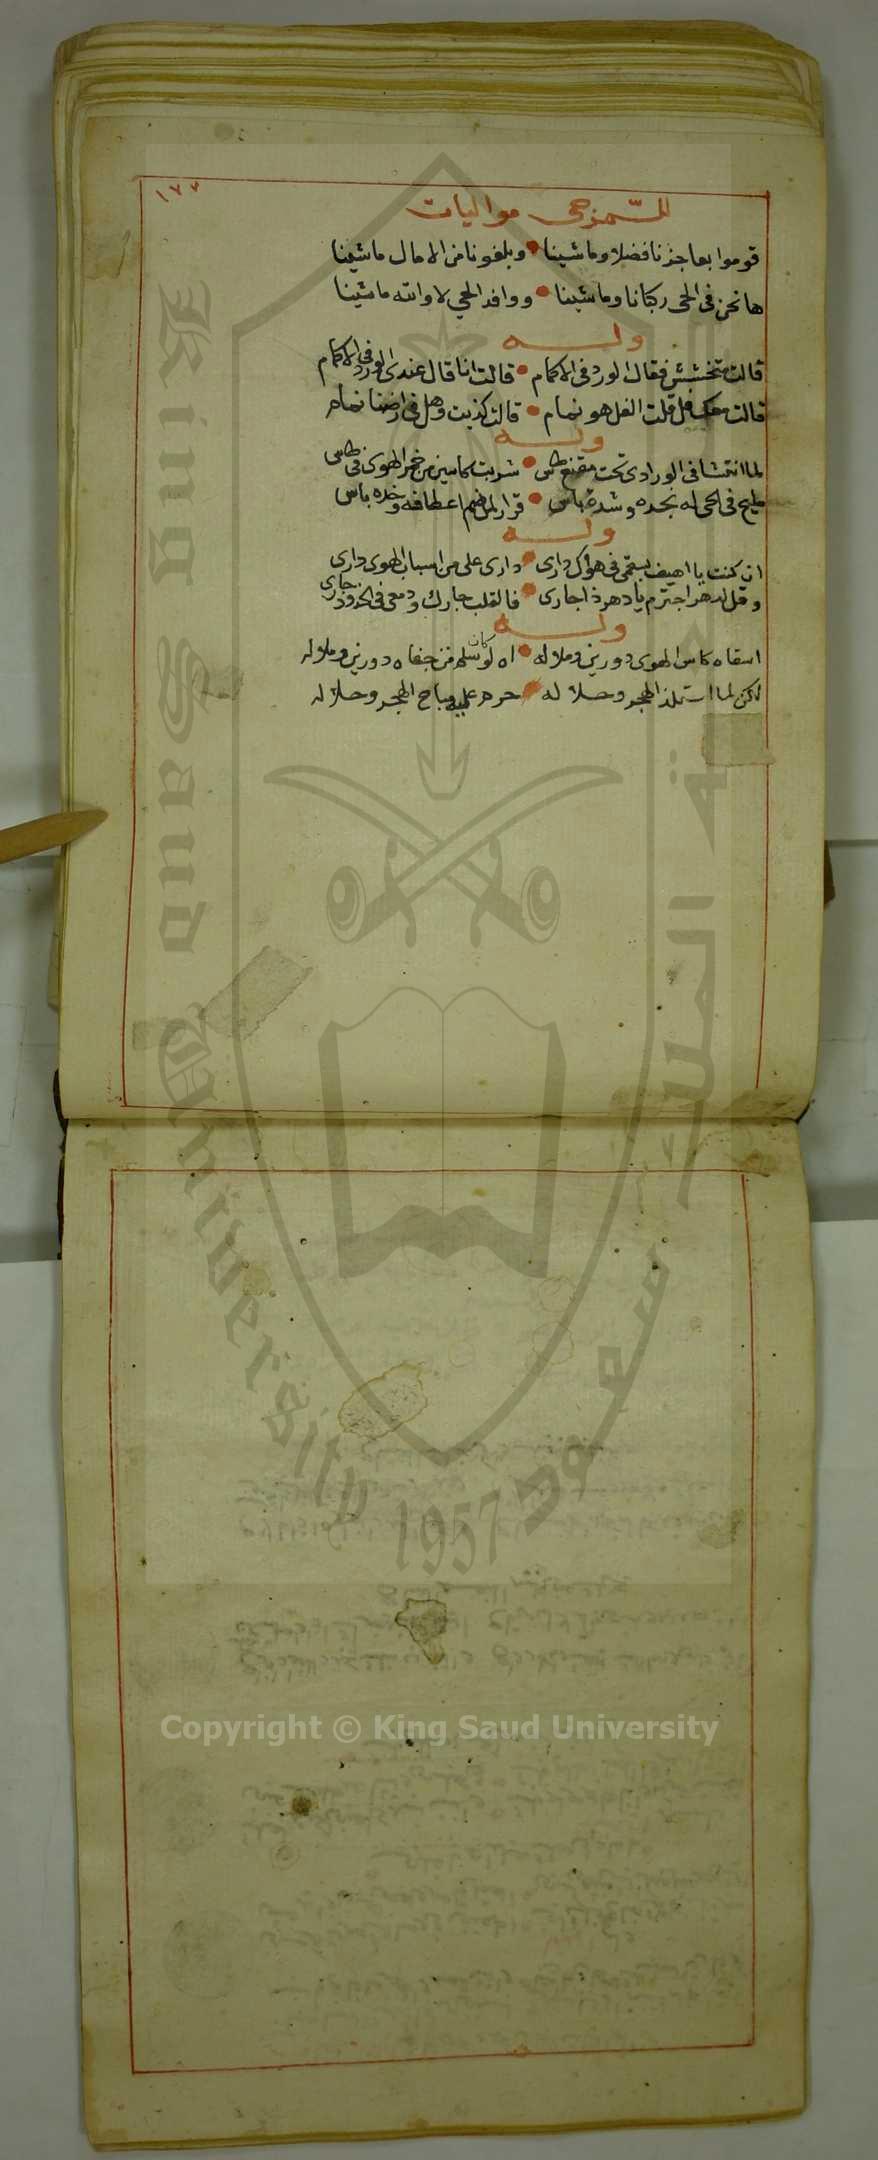 ١٧٣
للسمرجى مواليات
قوموا بعاجزنا فضلا وماشينا وبلغونا من الامال ماشينا
هانحن فى الحى ركبانا وماشينا ووافد الحي لا والله ماشينا
وله
قالت متخشبش فقال الورد فى الاكمام قالت انا قال عندى الورد فى الاكمام
قالت معك فل قلت الفل هو نمام قالت كذبت وهل فى ارضنا نمام
وله
لما انتشا فى الورادى تحت مقنع طاس شربت كاسين من خمر الهوى فى طاس
مليح فى الحى له نجده وشدة باس قرار لمن ضم اعطافه وخده باس
وله
ان كنت يا اهيف بسقمى فى هواك دارى دارى على من اسباب الهوى دارى
وقل لدهر اجترم يا دهر ذا جارى فالقلب جارك ودمعى فى الخدود جارى
وله
اسقاه كاس الهوى دورين وملا له اه لو كان سلم من جفاه دورين وملا له
لكن لما استلذ الهجر وحلا له حرم عليه مباح الهجر وحلا له
King Saud University
1957
Copyright © King Saud University